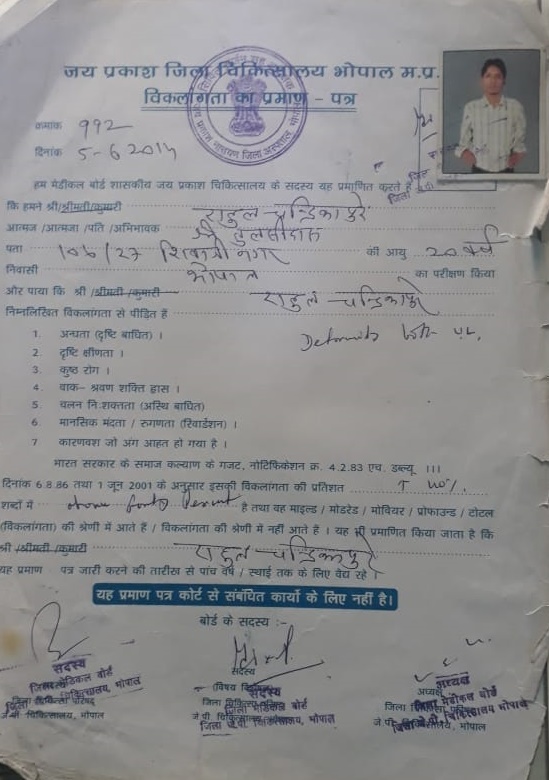 जय प्रकाश जिला चिकित्सालय भोपाल म.प्र.
विकलांगता का प्रमाण – पत्र
क्रमांक 992
दिनांक 5-6 2014
हम मेडीकल बोर्ड शासकीय जय प्रकाश चिकित्सालय के सदस्य यह प्रमाणित करते हैं
कि हमने श्री/श्रीमती/कुमारी राहुल चन्द्रिकापुरे
आत्मज /आत्मजा /पति /अभिभावक श्री तुलसीदास
पता 106/27 शिवाजी नगर की आयु 20 वर्ष
निवासी भोपाल का परीक्षण किया
और पाया कि श्री /श्रीमती/कुमारी राहुल चन्द्रिकापुरे
निम्नलिखित विकलांगता से पीड़ित है
Deformity both U.L.
1. अन्धता (दृष्टि बाधित) ।
2. दृष्टि क्षीणता ।
3. कुष्ठ रोग ।
4. वाक– श्रवण शक्ति ह्रास ।
5. चलन निःशक्तता (अस्थि बाधित)
6. मानसिक मंदता / रुगणता (रिटार्डेशन) ।
7. कारणवश जो अंग आहत हो गया है ।
भारत सरकार के समाज कल्याण के गजट, नोटिफिकेशन क्र. 4.2.83 एच. डब्ल्यू. ।।।
दिनांक 6.8.86 तथा 1 जून 2001 के अनुसार इसकी विकलांगता की प्रतिशत 40%
शब्दों में है तथा वह माइल्ड / मोडरेड / मोवियर / प्रोफाउन्ड / टोटल
(विकलांगता) की श्रेणी में आते हैं / विकलांगता की श्रेणी में नहीं आते हैं । यह भी प्रमाणित किया जाता है कि
श्री /श्रीमती /कुमारी राहुल चन्द्रिकापुरे
यह प्रमाण पत्र जारी करने की तारीख से पांच वर्ष / स्थाई तक के लिए वैद्य रहे ।
यह प्रमाण पत्र कोर्ट से संबंधित कार्यो के लिए नहीं है।
बोर्ड के सदस्य :–
सदस्य
जिला मेडिकल बोर्ड
जे.पी. चिकित्सालय, भोपाल
सदस्य
जिला मेडिकल बोर्ड
जे.पी. चिकित्सालय, भोपाल
अध्यक्ष
जिला मेडीकल बोर्ड
जे.पी. चिकित्सालय, भोपाल